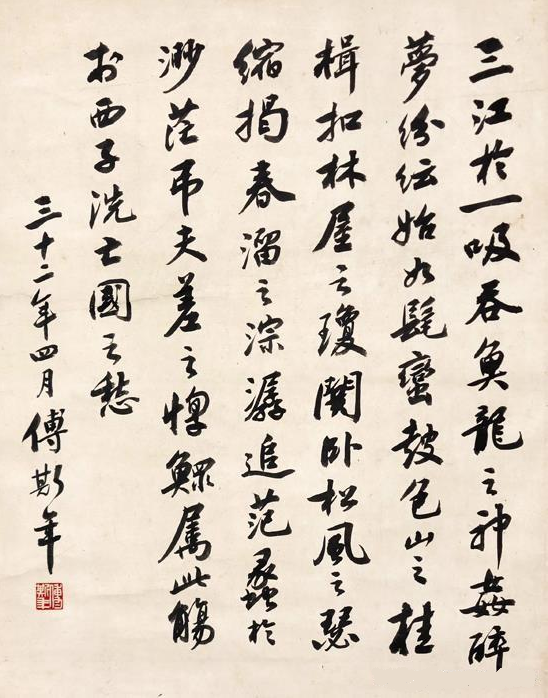 三江於一吸吞魚龍之神姦醉
夢紛紜始如髦蠻鼓包山之桂
楫扣林屋之瓊關臥松風之瑟
縮揭春溜之淙潺追范蠡於
渺茫弔夫差之惸鰥屬此觴
於西子洗亡國之愁
三十二年四月傅斯年